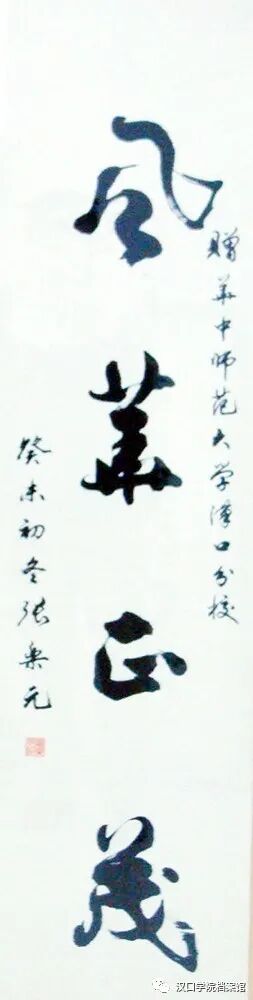 赠华中师范大学汉口分校
风华正茂
癸未初冬张乐元
汉口学院档案馆